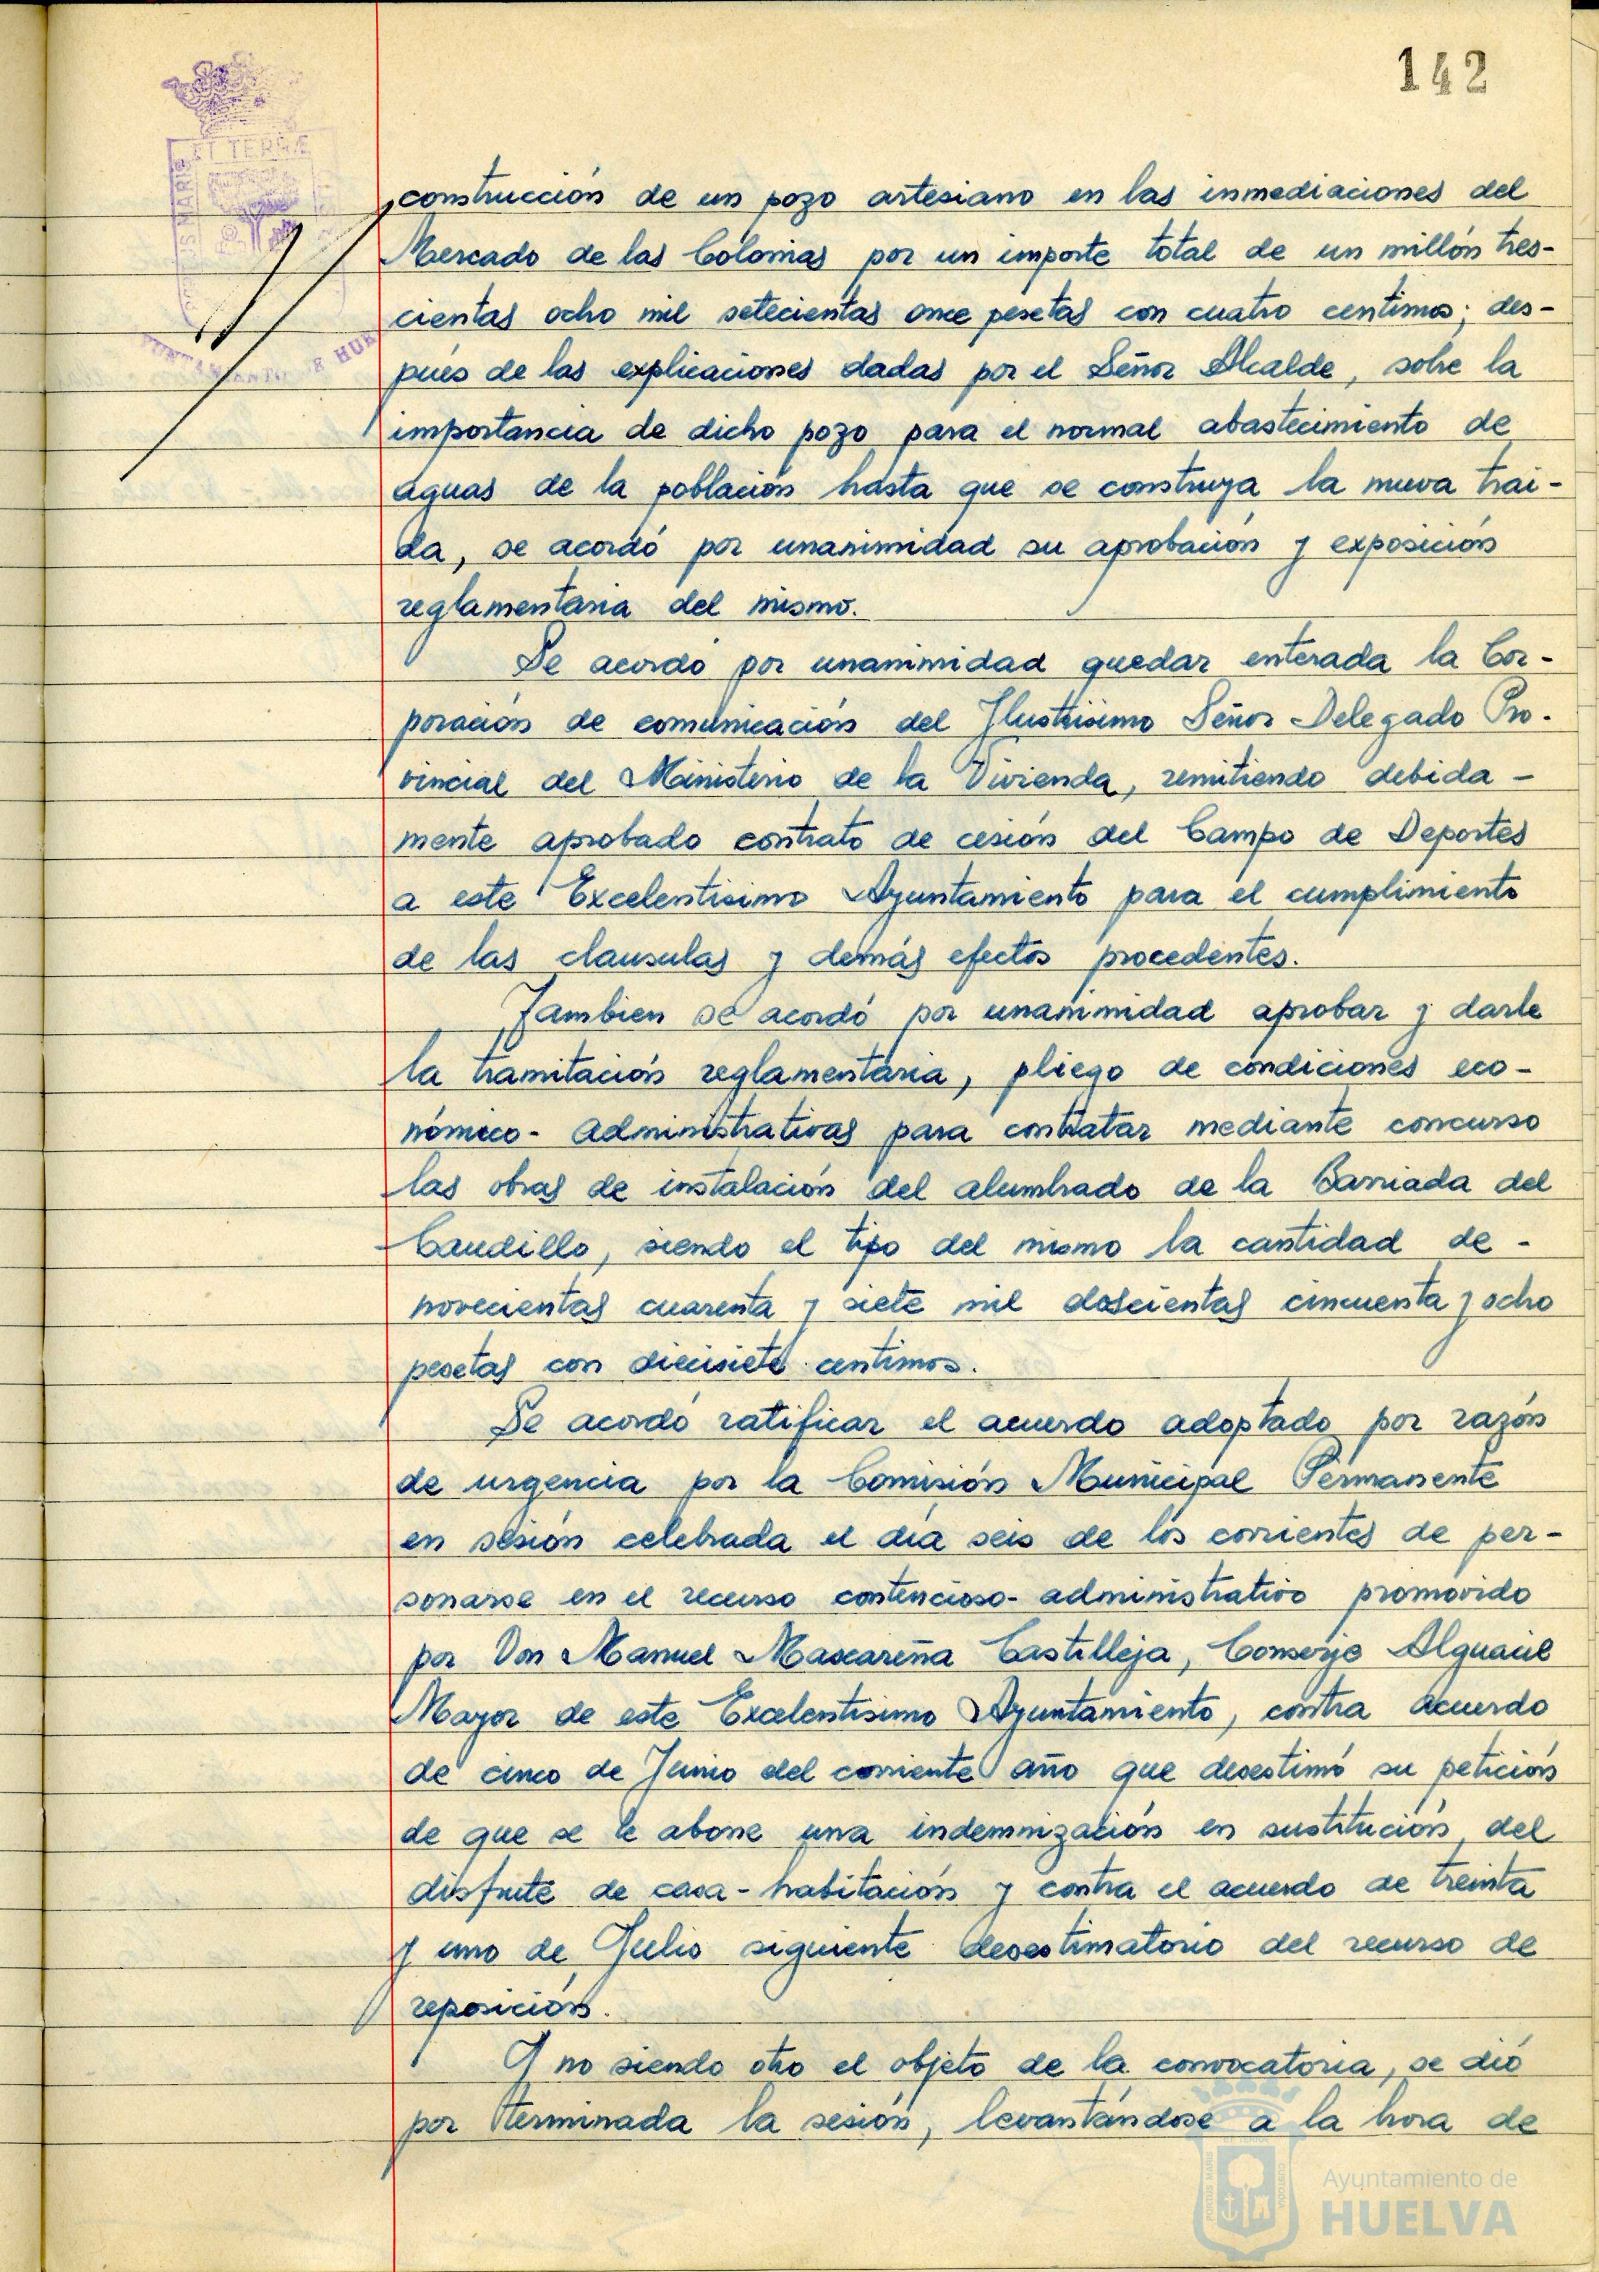 142
ET TERRÆ
PORTUS MARIS
AYUNTAMIENTO DE HUE
construcción de un pozo artesiano en las inmediaciones del
Mercado de las Colonias por un importe total de un millón tres-
cientas ocho mil setecientas once pesetas con cuatro centimos; des-
pués de las explicaciones dadas por el Señor Alcalde, sobre la
importancia de dicho pozo para el normal abastecimiento de
aguas de la población hasta que se construya la nueva trai-
da, se acordó por unanimidad su aprobación y exposición
reglamentaria del mismo.
Se acordó por unanimidad quedar enterada la Cor-
poración de comunicación del Ilustrisimo Señor Delegado Pro-
vincial del Ministerio de la Vivienda, remitiendo debida-
mente aprobado contrato de cesión del Campo de Deportes
a este Excelentisimo Ayuntamiento para el cumplimiento
de las clausulas y demás efectos procedentes.
Tambien se acordó por unanimidad aprobar y darle
la tramitación reglamentaria, pliego de condiciones eco-
nómico-administrativas para contratar mediante concurso
las obras de instalación del alumbrado de la Barriada del
Caudillo, siendo el tipo del mismo la cantidad de -
novecientas cuarenta y siete mil doscientas cincuenta y ocho
pesetas con diecisiete centimos.
Se acordó ratificar el acuerdo adoptado por razón
de urgencia por la Comisión Municipal Permanente
en sesión celebrada el día seis de los corrientes de per-
sonarse en el recurso contencioso-administrativo promovido
por Don Manuel Mascareña Castilleja, Conserje Alguacil
Mayor de este Excelentisimo Ayuntamiento, contra acuerdo
de cinco de Junio del corriente año que desestimó su petición
de que se le abone una indemnización en sustitución del
disfrute de casa-habitación y contra el acuerdo de treinta
y uno de Julio siguiente desestimatorio del recurso de
reposición.
Y no siendo otro el objeto de la convocatoria, se dió
por terminada la sesión, levantándose a la hora de
PORTUS MARIS
CUSTODIA
Ayuntamiento de
HUELVA